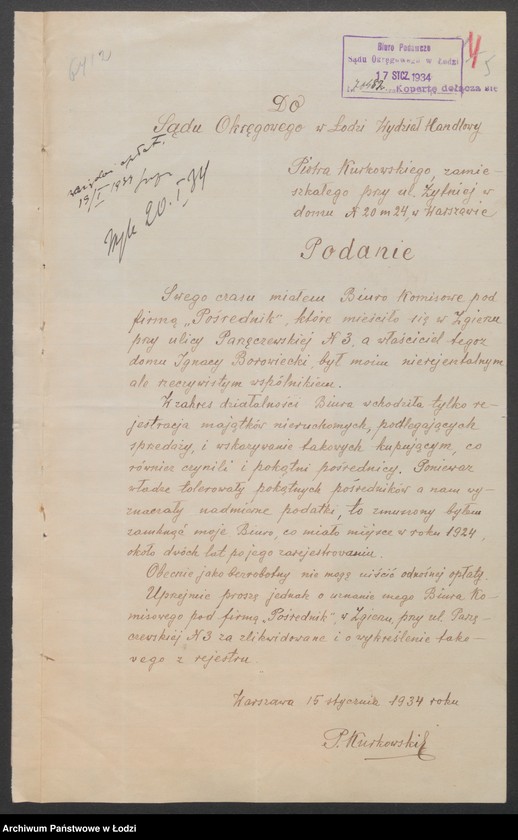 6412
4
5
Biuro Podawcze
Sądu Okręgowego w Łodzi
17 STCZ. 1934
Kopertę dołącza się
Do
Sądu Okręgowego w Łodzi Wydział Handlowy
19/I 1934
20.I.34
Piotra Kurkowskiego, zamie-
szkałego przy ul. Żytniej w
domu N 20 m 24, w Warszawie
Podanie
Swego czasu miałem Biuro Komisowe pod
firmą „Pośrednik", które mieściło się w Zgierzu
przy ulicy Parzęczewskiej N 3, a właściciel tegoż
domu Ignacy Borowiecki, był moim nierejentalnym
ale rzeczywistym wspólnikiem.
W zakres działalności Biura wchodziła tylko re-
jestracja majątków nieruchomych, podlegających
sprzedaży, i wskazywanie takowych kupującym, co
również czynili i pokątni pośrednicy. Ponieważ
władze tolerowały pokątnych pośredników a nam wy-
znaczały nadmierne podatki, to zmuszony byłem
zamknąć moje Biuro, co miało miejsce w roku 1924,
około dwóch lat po jego zarejestrowaniu.
Obecnie jako bezrobotny nie mogę uiścić odnośnej opłaty.
Uprzejmie proszę jednak o uznanie mego Biura Ko-
misowego pod firmą „Pośrednik", w Zgierzu, przy ul. Parzę-
czewskiej N 3 za zlikwidowane i o wykreślenie tako-
wego z rejestru.
Warszawa 15 stycznia 1934 roku
P. Kurkowski
Archiwum Państwowe w Łodzi